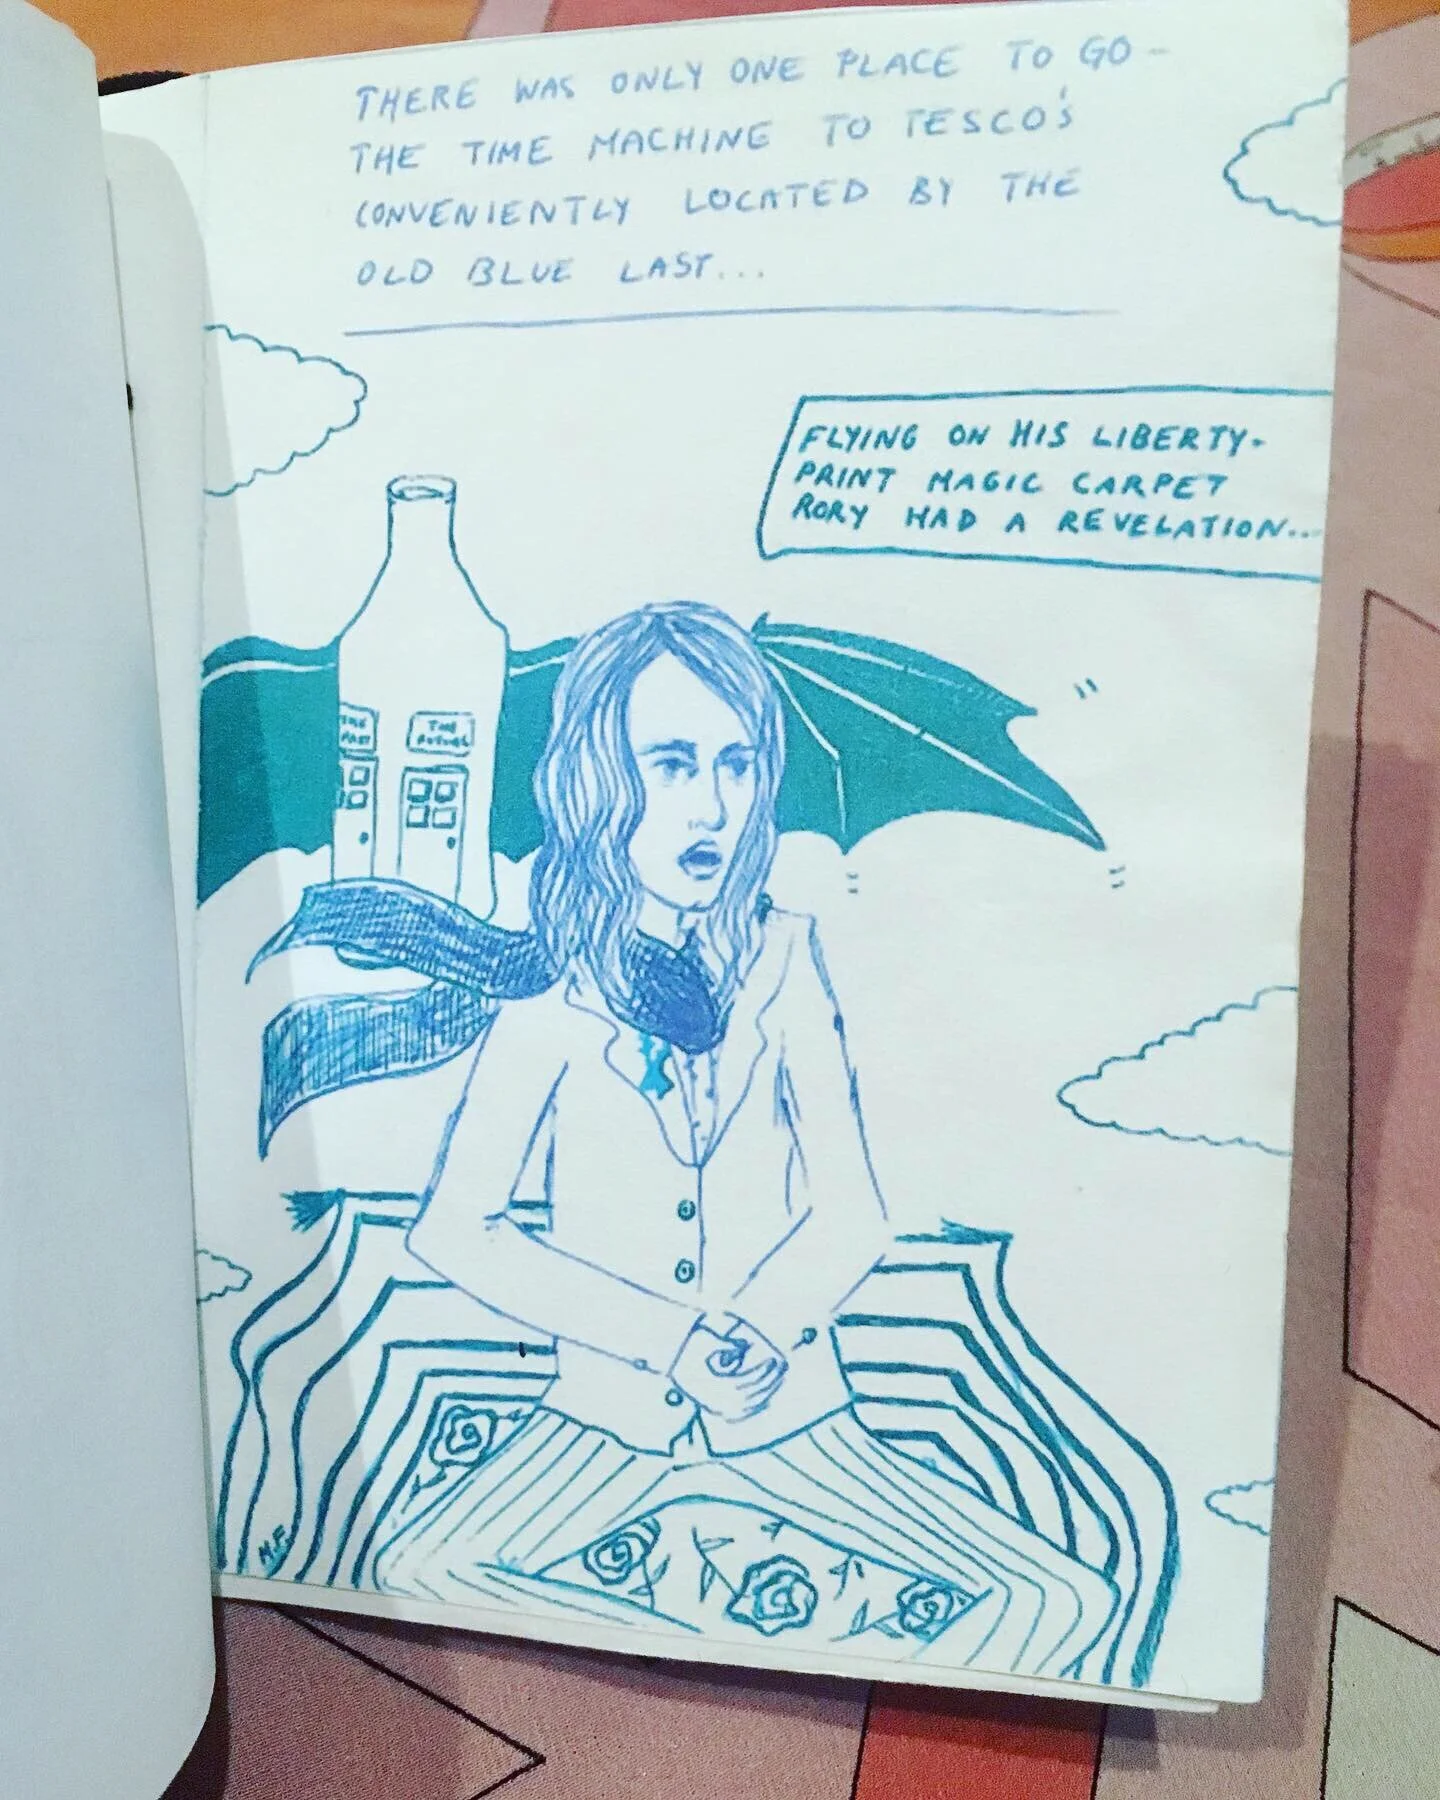 THERE WAS ONLY ONE PLACE TO GO -
THE TIME MACHINE TO TESCO'S
CONVENIENTLY LOCATED BY THE
OLD BLUE LAST...
FLYING ON HIS LIBERTY-
PRINT MAGIC CARPET
RORY HAD A REVELATION...
THE
PAST
THE
FUTURE
M.F.